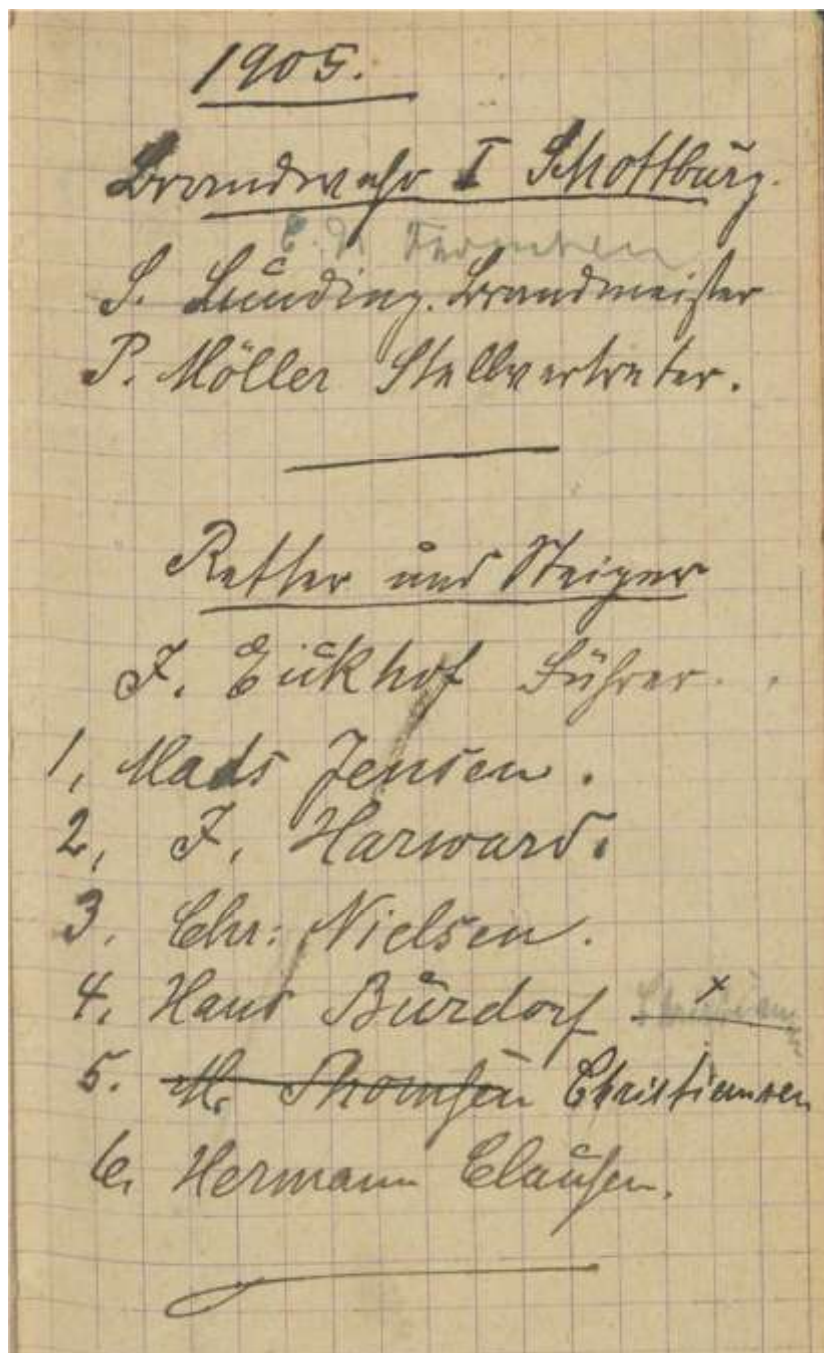 1905.
Brandwehr I Schottburg.
S. Lunding. Brandmeister
P. Möller Stellvertreter.
Retter und Steiger
F. Eukhof Führer.
1, Mads Jensen.
2, F. Harward.
3. Chr: Nielsen.
4, Hans Burdorf x
5. M. Thomsen Christiansen
6, Hermann Clausen.